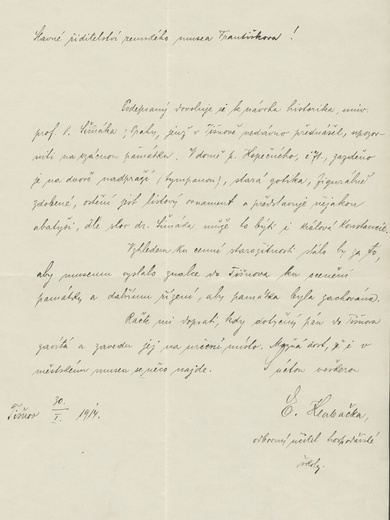 Slavné ředitelství zemského musea Františkova!
Podepsaný dovoluje si k návrhu historika, univ.
prof. V. Šimáka z Prahy, jenž v Tišnově nedávno přednášel, upozor-
niti na vzácnou památku. V domě p. Kopečného, č. 71, zazděno
je na dvoře nadpraží (tympanon), stará gotika, figurálně
zdobené, vedle jest listový ornament a představuje nějakou
abatyši, dle slov dr. Šimáka může to býti i králová Konstancie.
Vzhledem ku cenné starožitnosti stálo by za to,
aby museum vyslalo znalce do Tišnova ku ocenění
památky a dalšímu řízení, aby památka byla zachována.
Račte mi dopsati, kdy dotyčný pán do Tišnova
zavítá a zavedu jej na místo. Možná dost, že i v
městském museu se něco najde.
v úctou veškerou
E. Hlubačka,
odborný učitel hospodářské
školy.
Tišnov 30. / V. 1914.